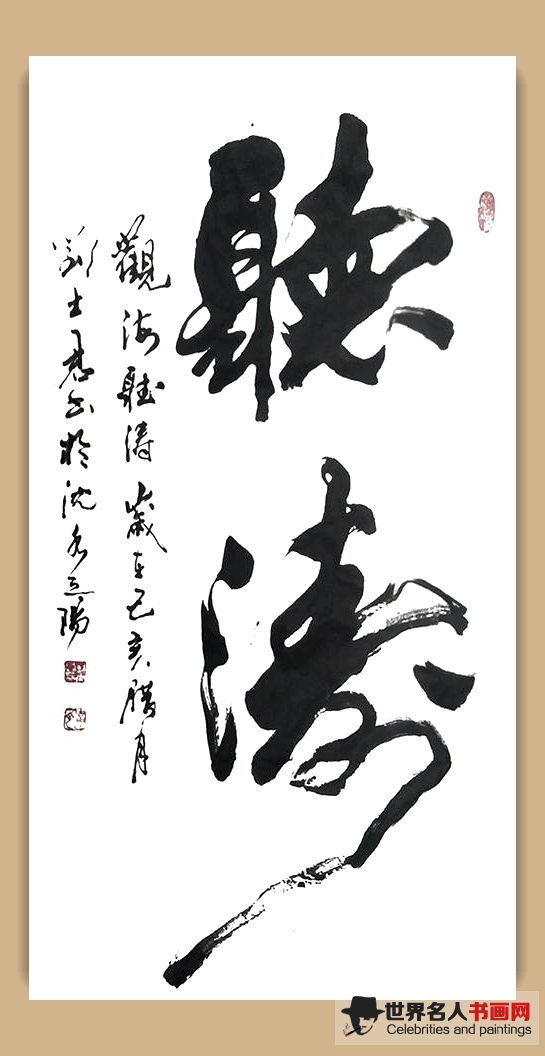 聽涛
觀海聽涛 歲在己亥腊月
劉士书於沈水之陽
世界名人书画网
Celebrities and paintings